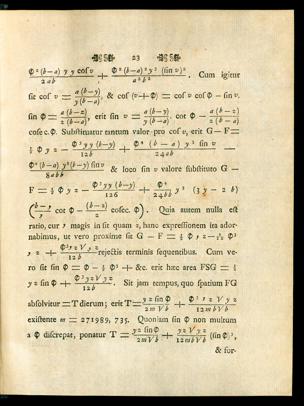 23
Φ² (b−a) y y cos v / 2ab + Φ² (b−a)² y² (sin v)² / a² b² . Cum igitur
sit cos v = a (b−y) / y (b−a), & cos (v+Φ) = cos v cos Φ − sin v.
sin Φ = a (b−z) / z (b−a), erit sin v = a (b−y) / y (b−a). cot Φ − a (b−z) / z (b−a)
cosec Φ. Substituatur tantum valor pro cos v, erit G − F =
½ Φ y z − Φ³ y y (b−y) / 12 b + Φ⁴ (b−a) y³ sin v / 24 a b −
y² (b−y) sin v / 8 a b b & loco sin v valore substituto G −
F = ½ Φ y z − y y (b−y) / + Φ⁴ / 24 b b y² (3 y − 2 b)
cot Φ − (b−z) / z cosec. Φ ) . Quia autem nulla est
ratio, cur y magis in sit quam z, hanc expressionem ita ador-
nabimus, ut vero proxime sit G − F = ½ Φ y z − Φ³
y z + / 12 b rejectis terminis sequentibus. Cum ve-
ro sit sin Φ = Φ − Φ³ + &c. erit hæc area FSG = ½
y z sin Φ + / 12 b . Sit jam tempus, quo spatium FG
absolvitur = T dierum; erit T = y z sin Φ / 2 m V b + y z V y z / 12 m V b
existente m = 271989, 735. Quoniam sin Φ non multum
a Φ discrepat, ponatur T = y z sin Φ / 2 m V b + y z V y z / 12 m V b (sin Φ)³,
& for-